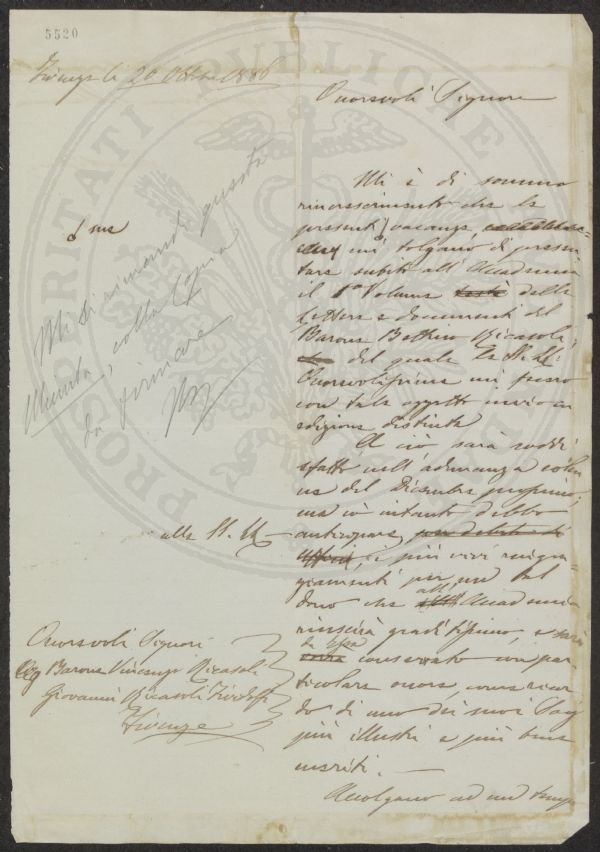 5520
Firenze li 20 Ottobre 1886
Onorevoli Signori
Mi è di sommo
rincrescimento che le
presenti vacanze
mi tolgano di presen-
tare subito all'Accademia
il 1º Volume testè delle
Lettere e documenti del
Barone Bettino Ricasoli,
del quale le SS. LL.
Onorevolissime mi fecero
con tale oggetto invio in
edizione distinta.
A ciò sarà soddi-
sfatto nell'adunanza
del Dicembre prossimo;
ma io intanto debbo
anticipare, per debito di
ufficio, i più vivi ringra-
ziamenti per un tal
dono che all'Accademia
riuscirà graditissimo, e sarà
da essa conservato con par-
ticolare onore, come ricor-
do di uno dei suoi Socj
più illustri e più bene-
meriti.
Accolgano ad un tempo
Mi si rimandi questa
Minuta, colla Copia
da firmare
alle SS. LL.
Onorevoli Signori
Sig. Barone Vincenzo Ricasoli
Giovanni Ricasoli Firidolfi
Firenze
PROSPERITATI PUBLICAE